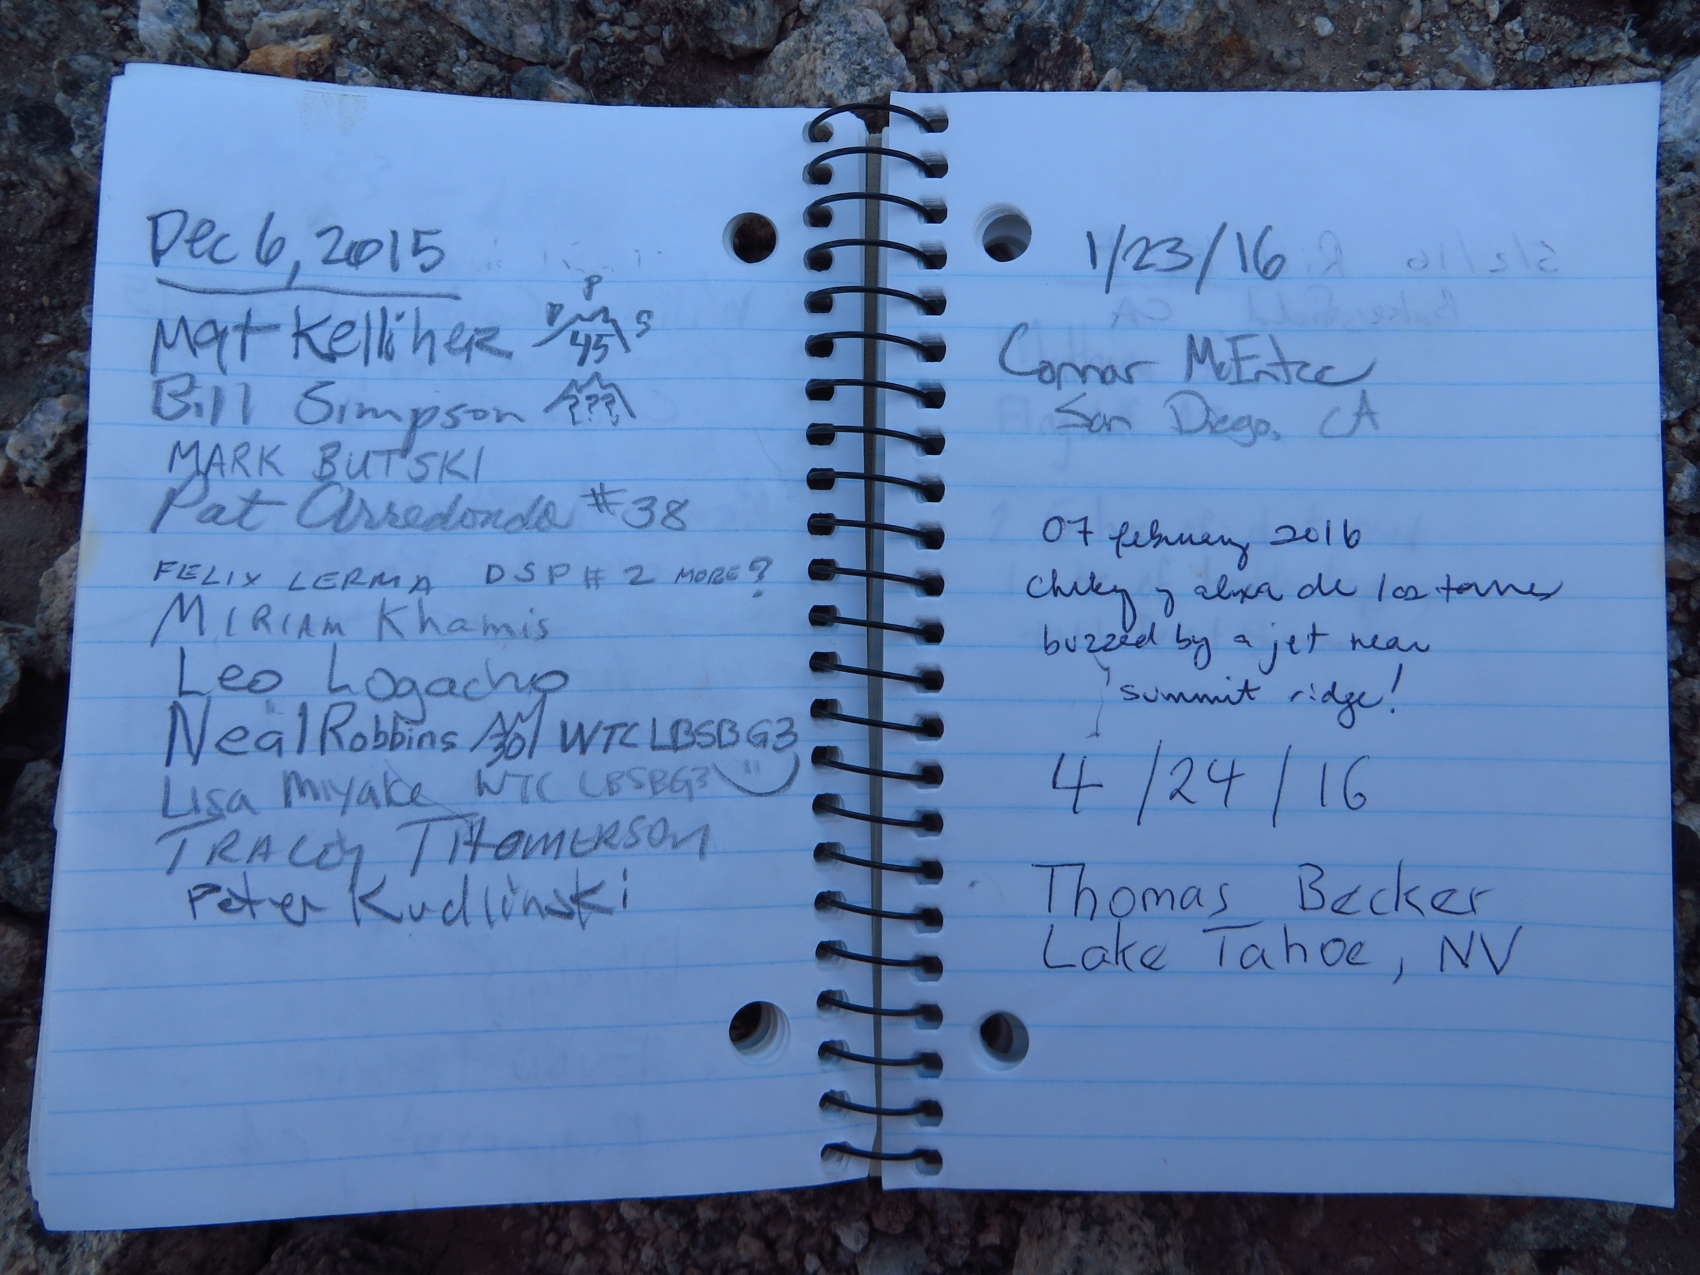 Dec 6, 2015
Mat Kelliher D P S 45
Bill Simpson ???
MARK BUTSKI
Pat Arredondo #38
FELIX LERMA DSP # 2 MORE?
MIRIAM Khamis
Leo Logacho
Neal Robbins 30 WTC LBSBG3
Lisa Miyake WTC LBSBG3
TRACY THOMERSON
Peter Kudlinski
1/23/16
Connor McEntee
San Diego, CA
07 february 2016
y alexa de los torres
buzzed by a jet near
summit ridge!
4/24/16
Thomas Becker
Lake Tahoe, NV